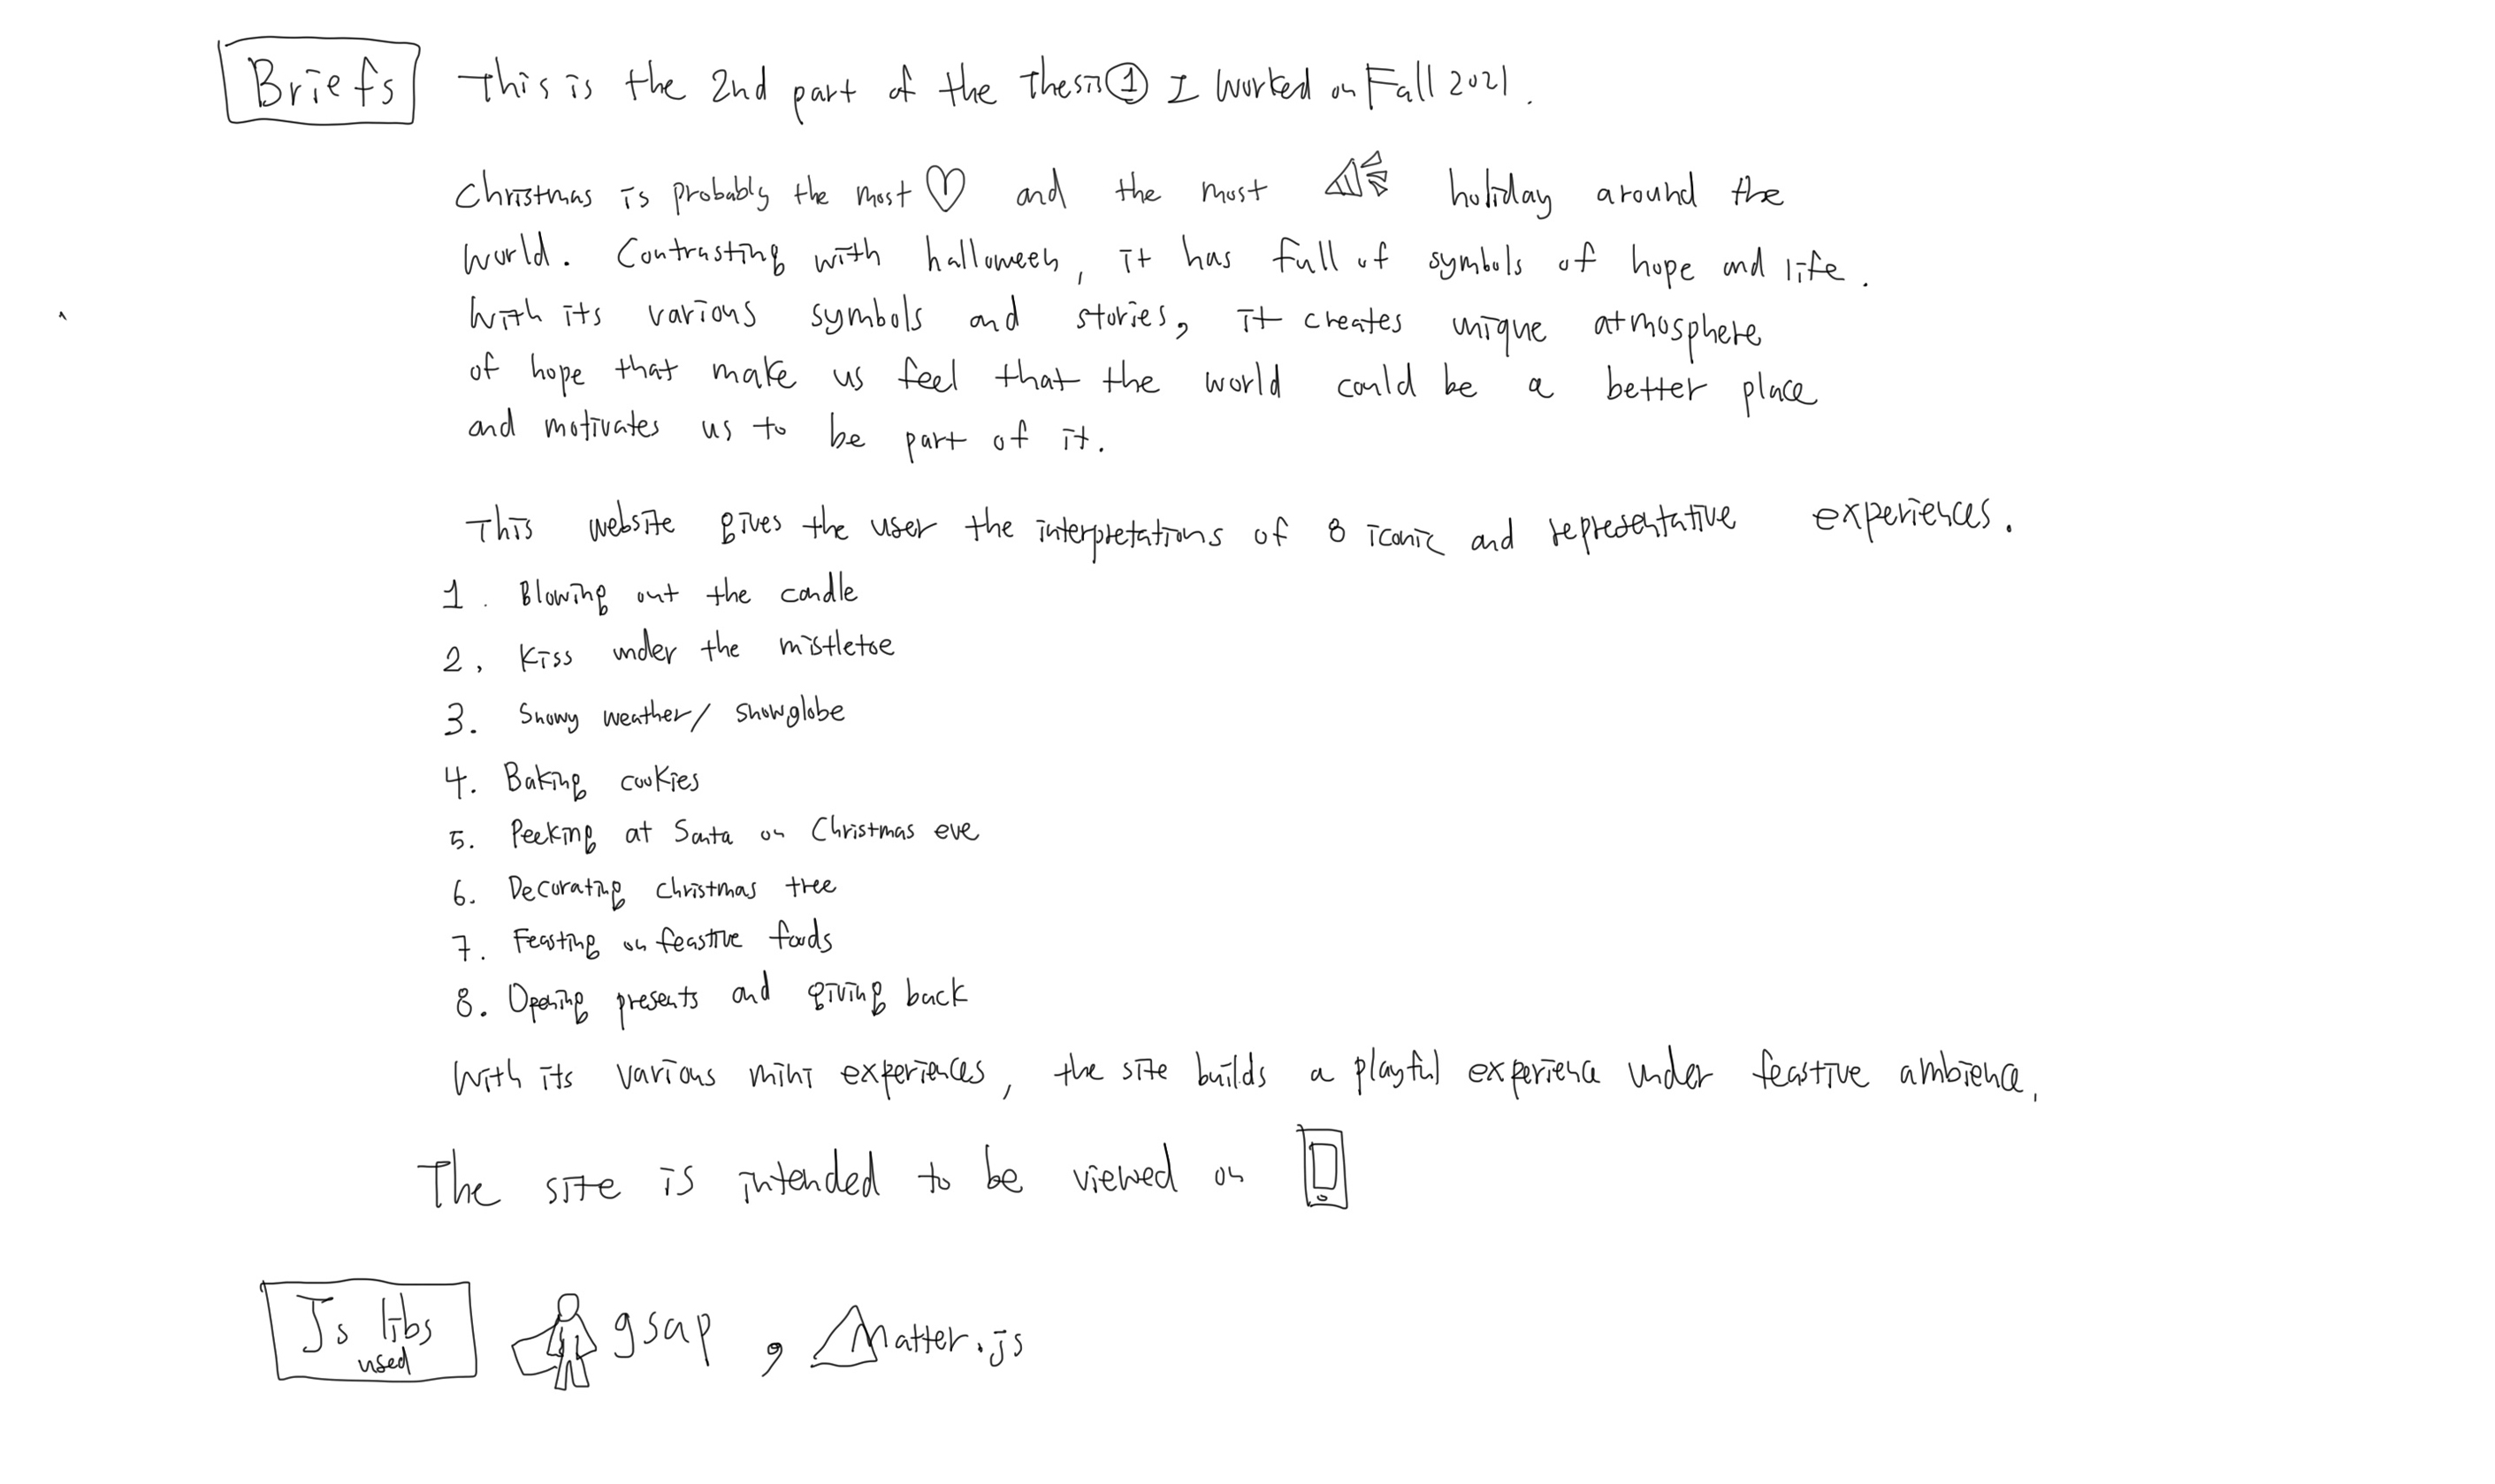 Briefs This is the 2nd part of the thesis ① I worked on Fall 2021.
Christmas is probably the most and the most holiday around the
world. Contrasting with halloween, it has full of symbols of hope and life.
With its various symbols and stories, it creates unique atmosphere
of hope that make us feel that the world could be a better place
and motivates us to be part of it.
This website gives the user the interpretations of 8 iconic and representative experiences.
1. Blowing out the candle
2. Kiss under the mistletoe
3. Snowy weather/ snowglobe
4. Baking cookies
5. Peeking at Santa on Christmas eve
6. Decorating christmas tree
7. Feasting on feastive foods
8. Opening presents and giving back
With its various mini experiences, the site builds a playful experience under feastive ambience.
The site is intended to be viewed on
Js libs used gsap, Matter.js